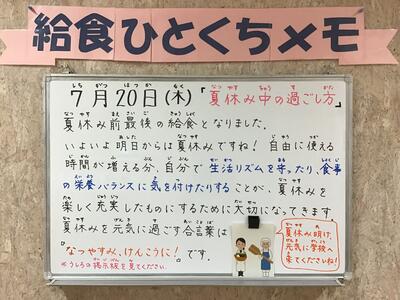 給食ひとくちメモ
7月20日(木)「夏休み中の過ごし方」
夏休み前最後の給食となりました。
いよいよ明日からは夏休みですね！自由に使える
時間が増える分、自分で生活リズムを守ったり、食事
の栄養バランスに気を付けたりすることが、夏休みを
楽しく充実したものにするために大切になってきます。
夏休みを元気に過ごす合言葉は
「なつやすみ、けんこうに！」です。
※うしろの掲示板を見てください。
夏休み明け、
元気に学校へ
来てくださいね！